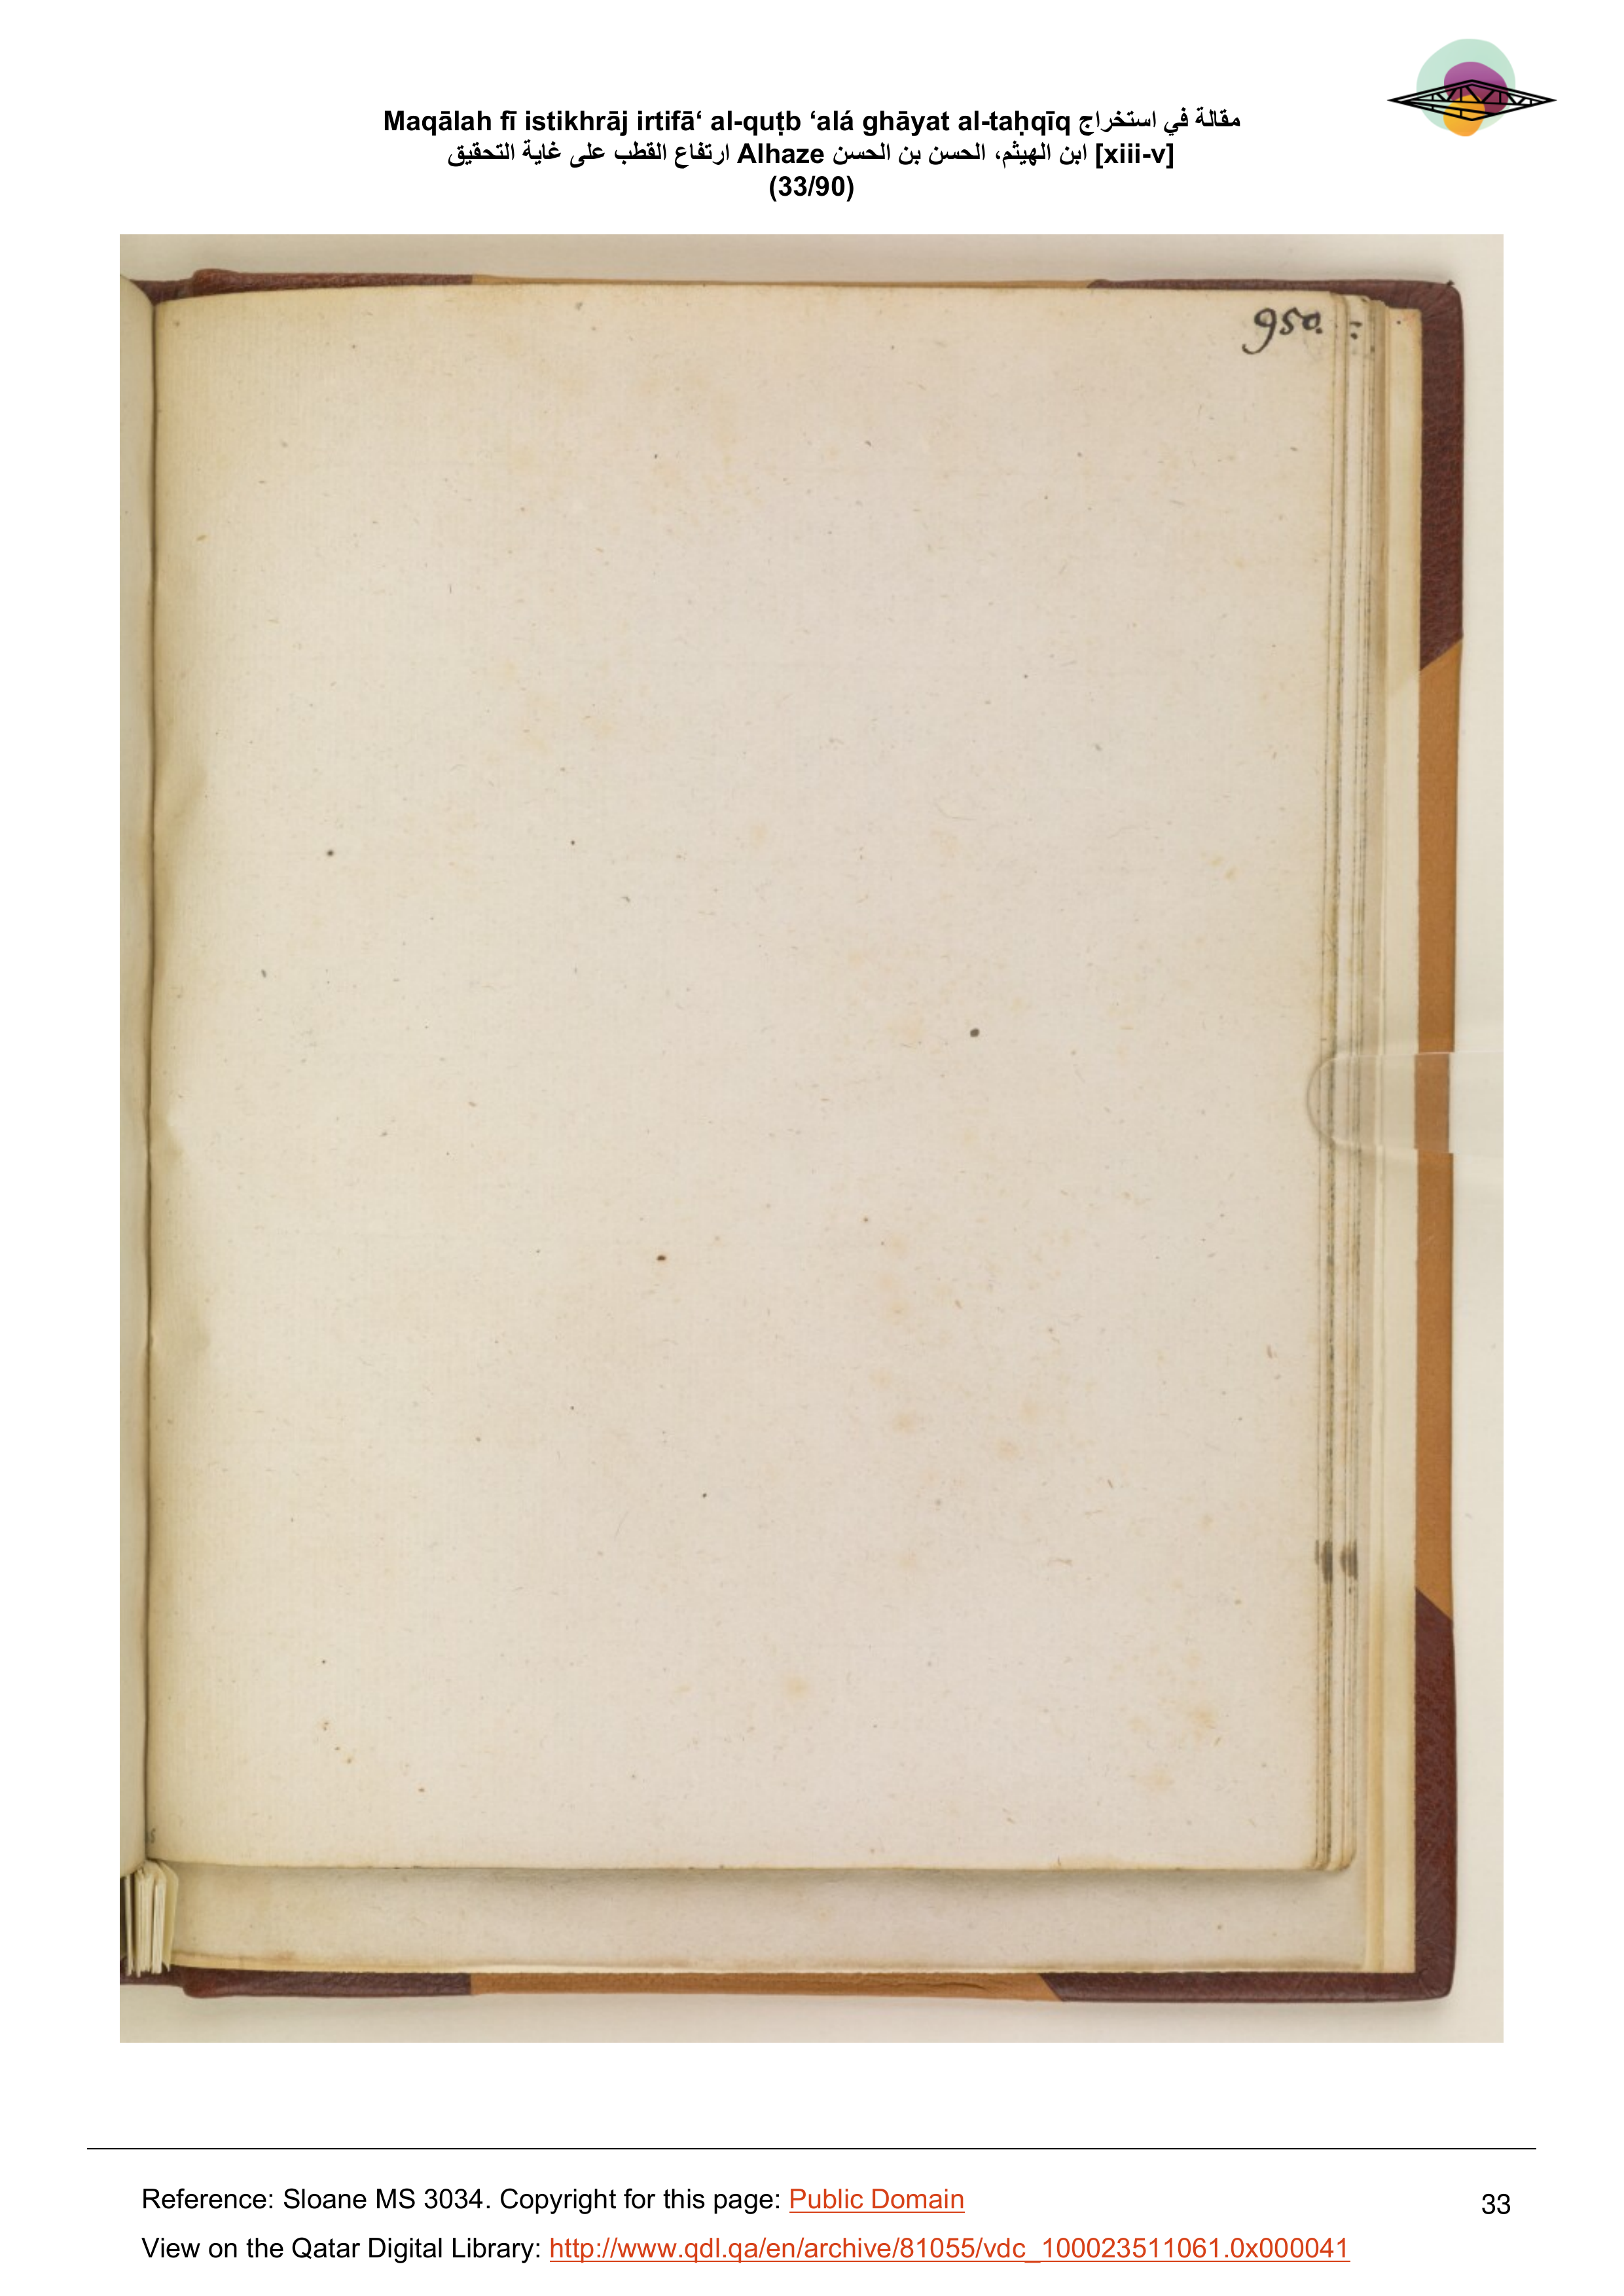 Maqālah fī istikhrāj irtifā‘ al-quṭb ‘alá ghāyat al-taḥqīq مقالة في استخراج
ارتفاع القطب على غاية التحقيق Alhaze ابن الهيثم، الحسن بن الحسن [xiii-v]
(33/90)
950.
Reference: Sloane MS 3034. Copyright for this page: Public Domain
33
View on the Qatar Digital Library: http://www.qdl.qa/en/archive/81055/vdc_100023511061.0x000041